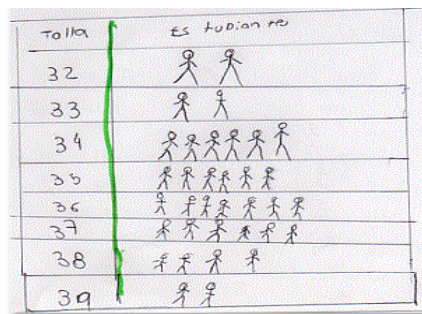 Talla Estudiante
32
33
34
35
36
37
38
39